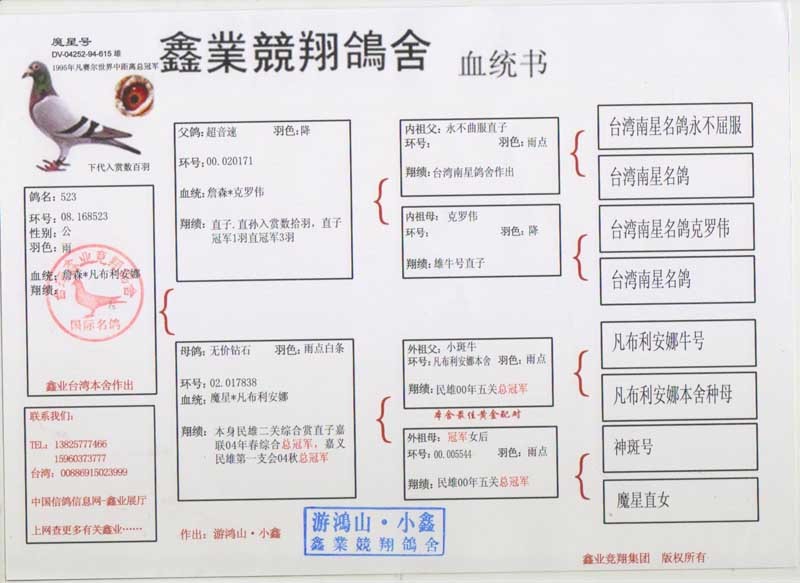 魔星号
DV-04252-94-615 雄
1995年凡赛尔世界中距离总冠军
鑫業競翔鴿舍 血统书
下代入赏数百羽
鸽名: 523
环号: 08.168523
性别: 公
羽色: 雨
血统: 詹森*凡布利安娜
翔绩:
国际名鸽
鑫业台湾本舍作出
联系我们:
TEL: 13825777466
15960373777
台湾: 00886915023999
中国信鸽信息网-鑫业展厅
上网查更多有关鑫业……
父鸽: 超音速 羽色: 降
环号: 00.020171
血统: 詹森*克罗伟
翔绩: 直子.直孙入赏数拾羽，直子
冠军1羽直冠军3羽
母鸽: 无价钻石 羽色: 雨点白条
环号: 02.017838
血统: 魔星*凡布利安娜
翔绩: 本身民雄二关综合赏直子嘉
联04年春综合总冠军，嘉义
民雄第一支会04秋总冠军
作出: 游鸿山·小鑫
内祖父: 永不曲服直子
环号: 羽色: 雨点
翔绩: 台湾南星鸽舍作出
内祖母: 克罗伟
环号: 羽色: 降
翔绩: 雄牛号直子
外祖父: 小斑牛
环号: 凡布利安娜本舍 羽色: 雨点
翔绩: 民雄00年五关总冠军
本舍最佳黄金配对
外祖母: 冠军女后
环号: 00.005544 羽色: 雨点
翔绩: 民雄00年五关总冠军
游鴻山·小鑫
鑫業競翔鴿舍
台湾南星名鸽永不屈服
台湾南星名鸽
台湾南星名鸽克罗伟
台湾南星名鸽
凡布利安娜牛号
凡布利安娜本舍种母
神斑号
魔星直女
鑫业竞翔集团 版权所有